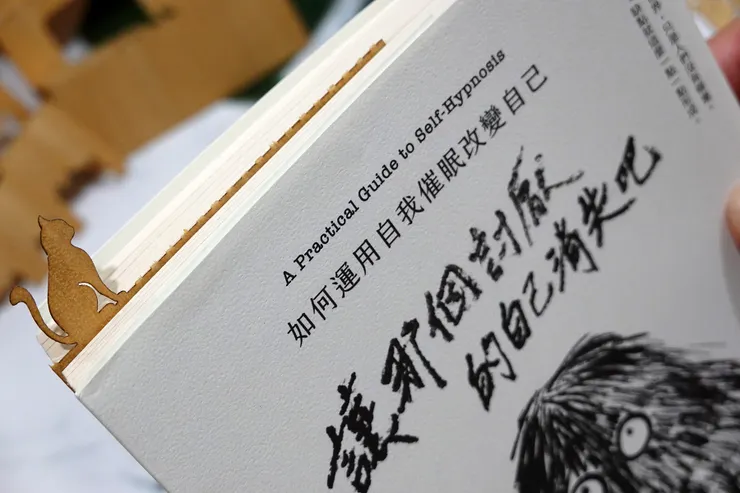 A Practical Guide to Self-Hypnosis
如何運用自我催眠改變自己
讓那個討厭
的自己消失吧